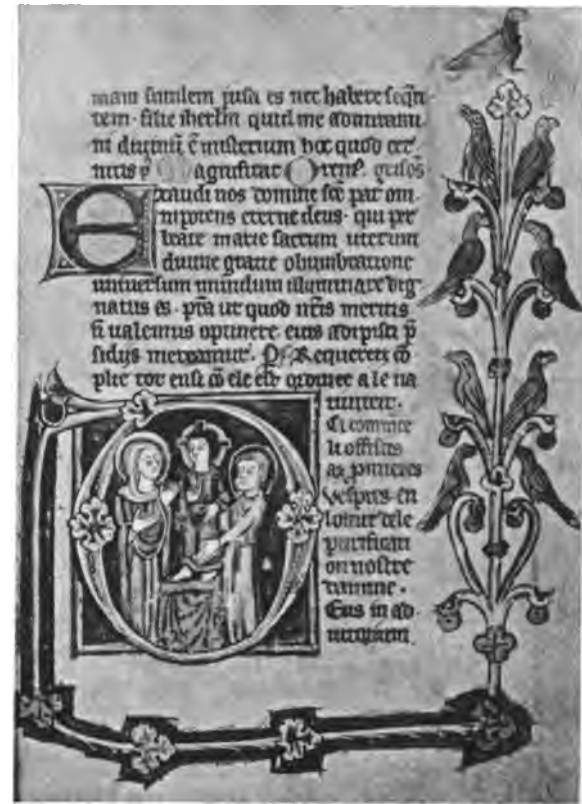 mam similem uisa es nec habere seqn
tem. filie iherlm quid me admiramī
ni diuinū ē misterium hoc quod cer
nitis
Exaudi nos domine sce pat om
nipotens eterne deus. qui per
beate marie sacrum uterum
diuine gratie obumbratione
uniuersum mundum illuminare dig
natus es. ut quod nris meritis
ualemus optinere eius adipisci
sidijs mereamur. Requerez
plie tot ensi cō ele est ordinee a le na
tiuitei.
Ci comence
li offises
as primeres
vespres en
lonur dele
purificati
on nostre
damme.
Eus in ad
iutorium